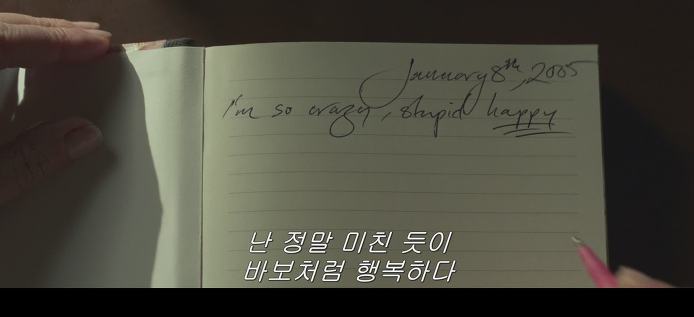 January 8th, 2005
I'm so crazy, stupid happy
난 정말 미친 듯이
바보처럼 행복하다